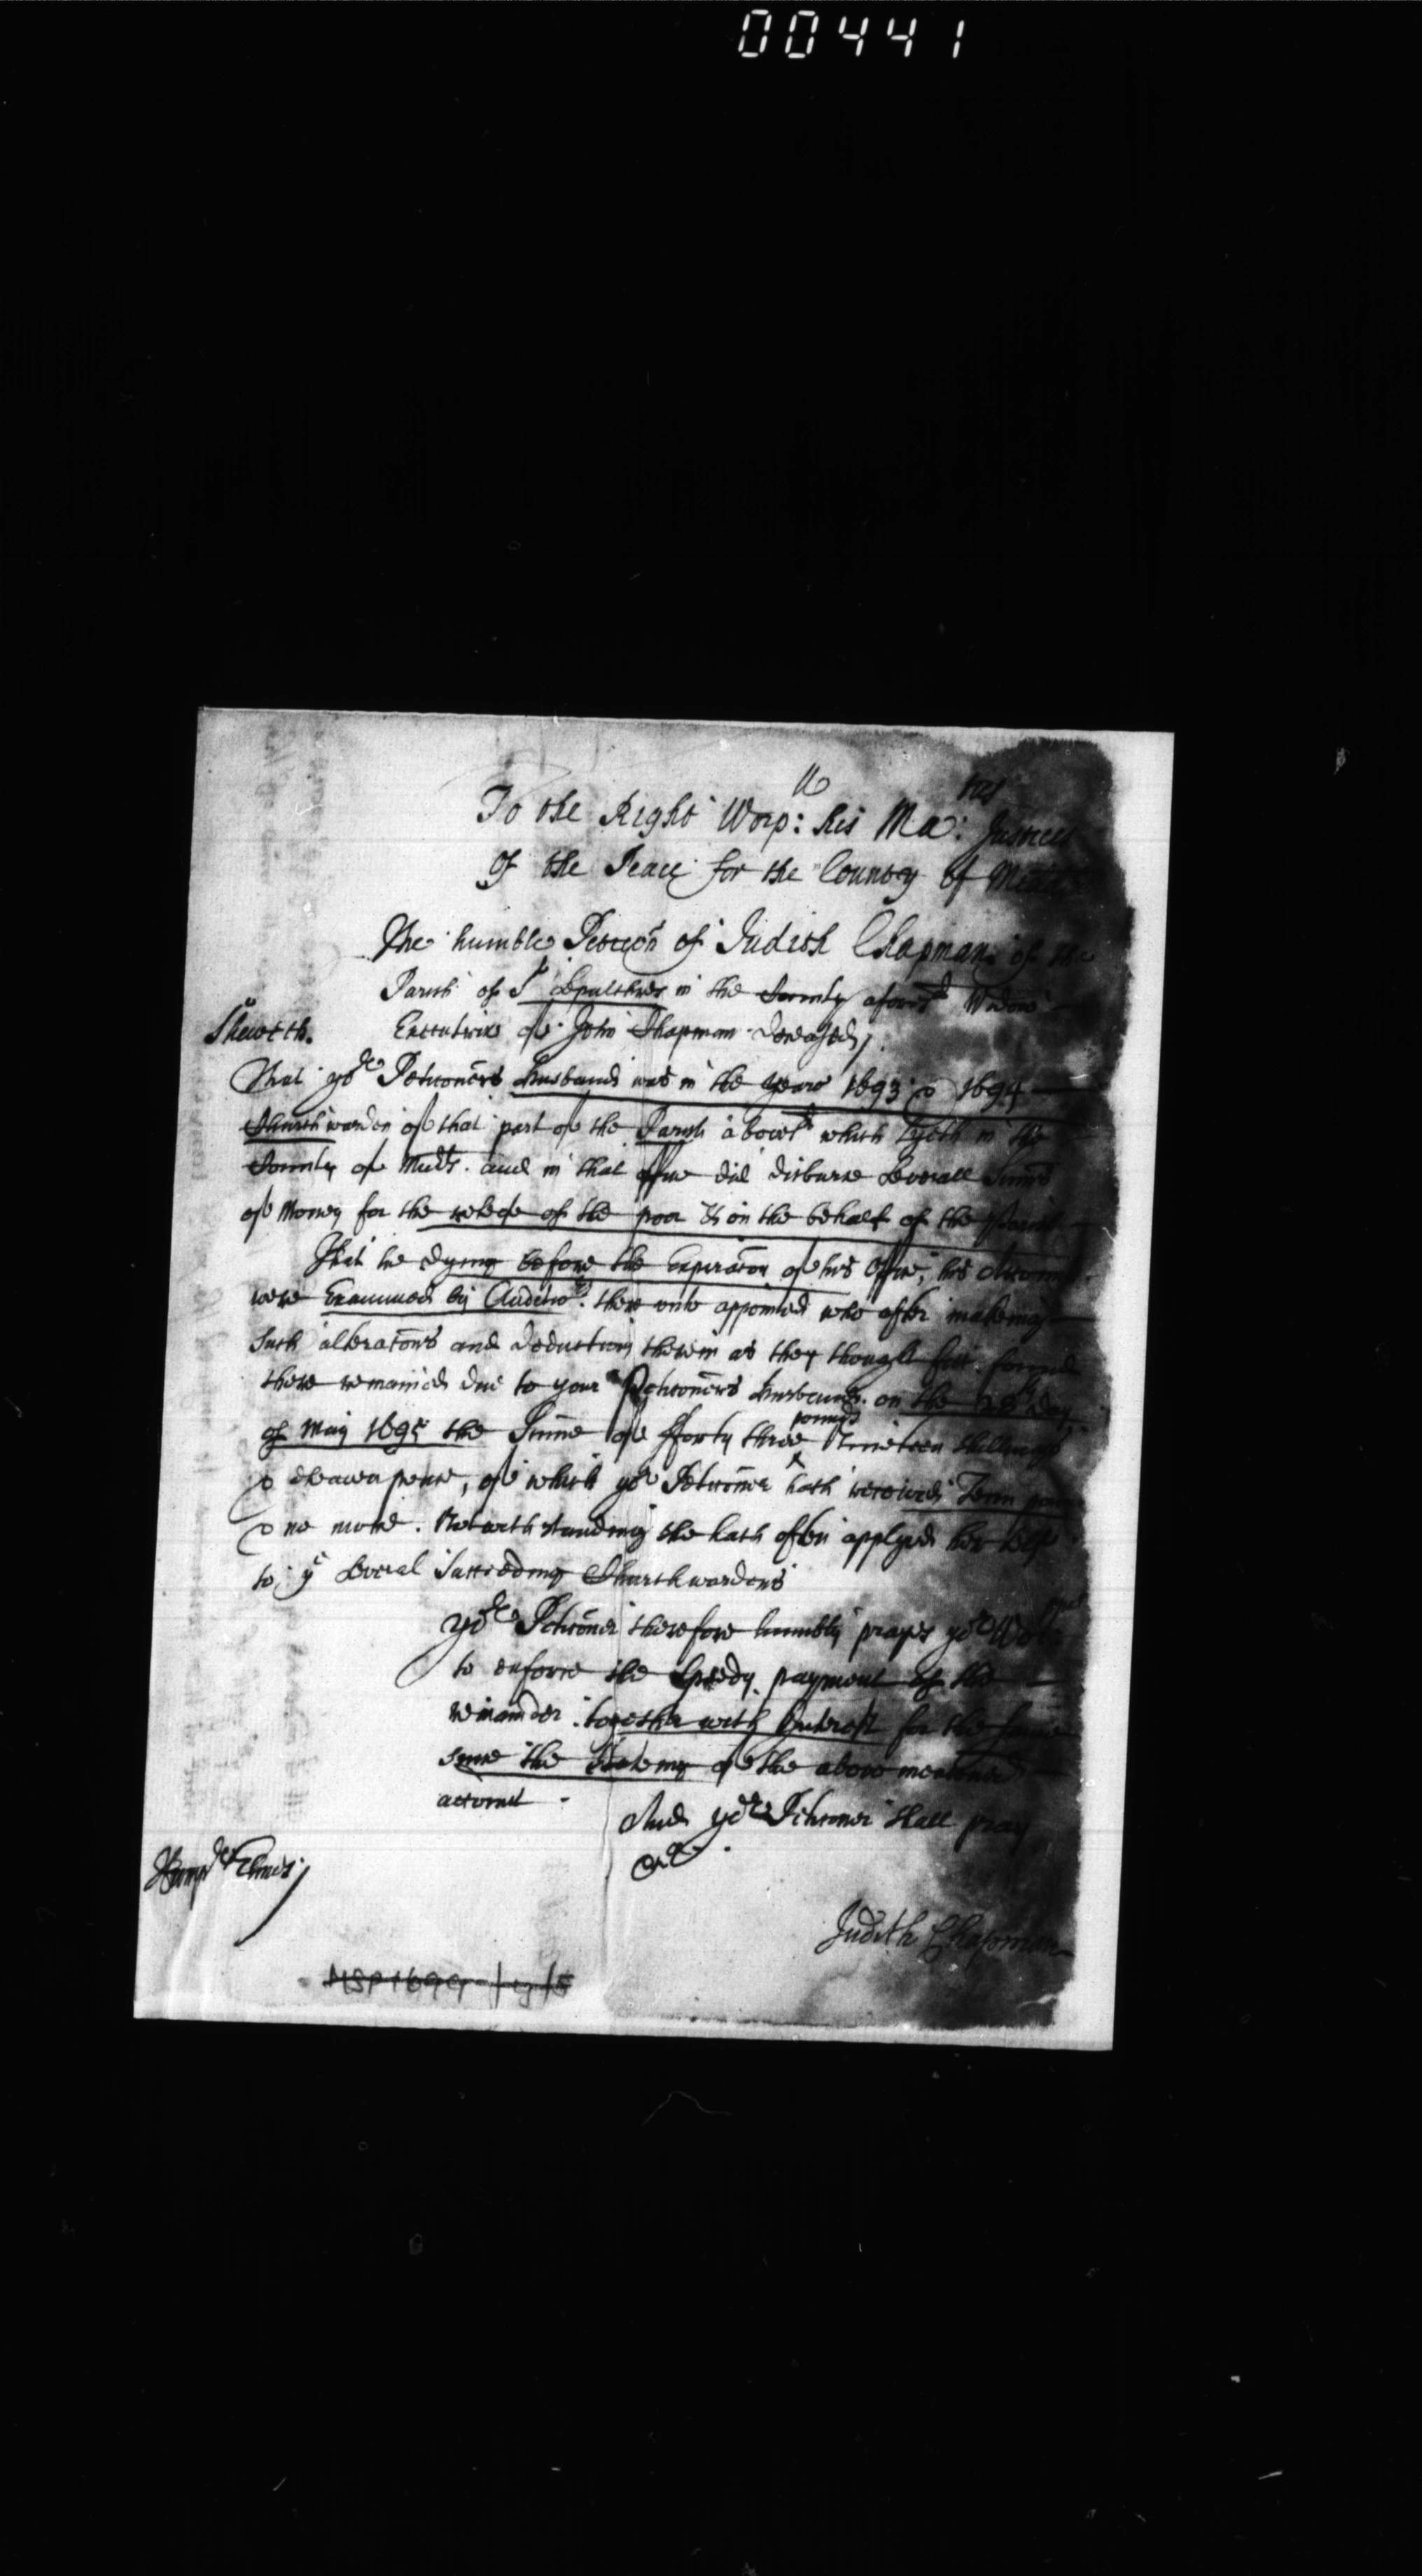 00441
To the Right Worp:ll his Ma:ties Justices
of the Peace for the County of Midd
The humble Peticon of Judith Chapman of the
Parish of St Sepulchres in the County aforesd Widow
Executrix of John Chapman deceased,
Sheweth.
That yor Peticoners husband was in the years 1693 & 1694
Churchwarden of that part of the Parish abovesd which lyeth in the
County of Middx. and in that office did disburse severall Summs
of Money for the releife of the poor & on the behalf of the Parish
That he dying before the Expiracon of his Office, his Accounts
were Examined by Auditors there unto appointed who after makeing
such alteracons and deductions therein as they thought fitt found
there remained due to your Peticoners husband on the 28th day
of May 1695 the Summe of fforty three pounds Nineteen shillings
& eleaven pence, of which yor Peticoner hath received Tenn pounds
& no more. Notwithstanding she hath often applyed her self
to ye severall succeeding Churchwardens
Yor Peticoner therefore humbly prayes yor Worpps
to enforce the speedy payment of the
remainder together with Interest for the same
since the Stateing of the above mentioned
account.
And yor Peticoner shall pray
&c.
Judith Chapman
MSP 1699